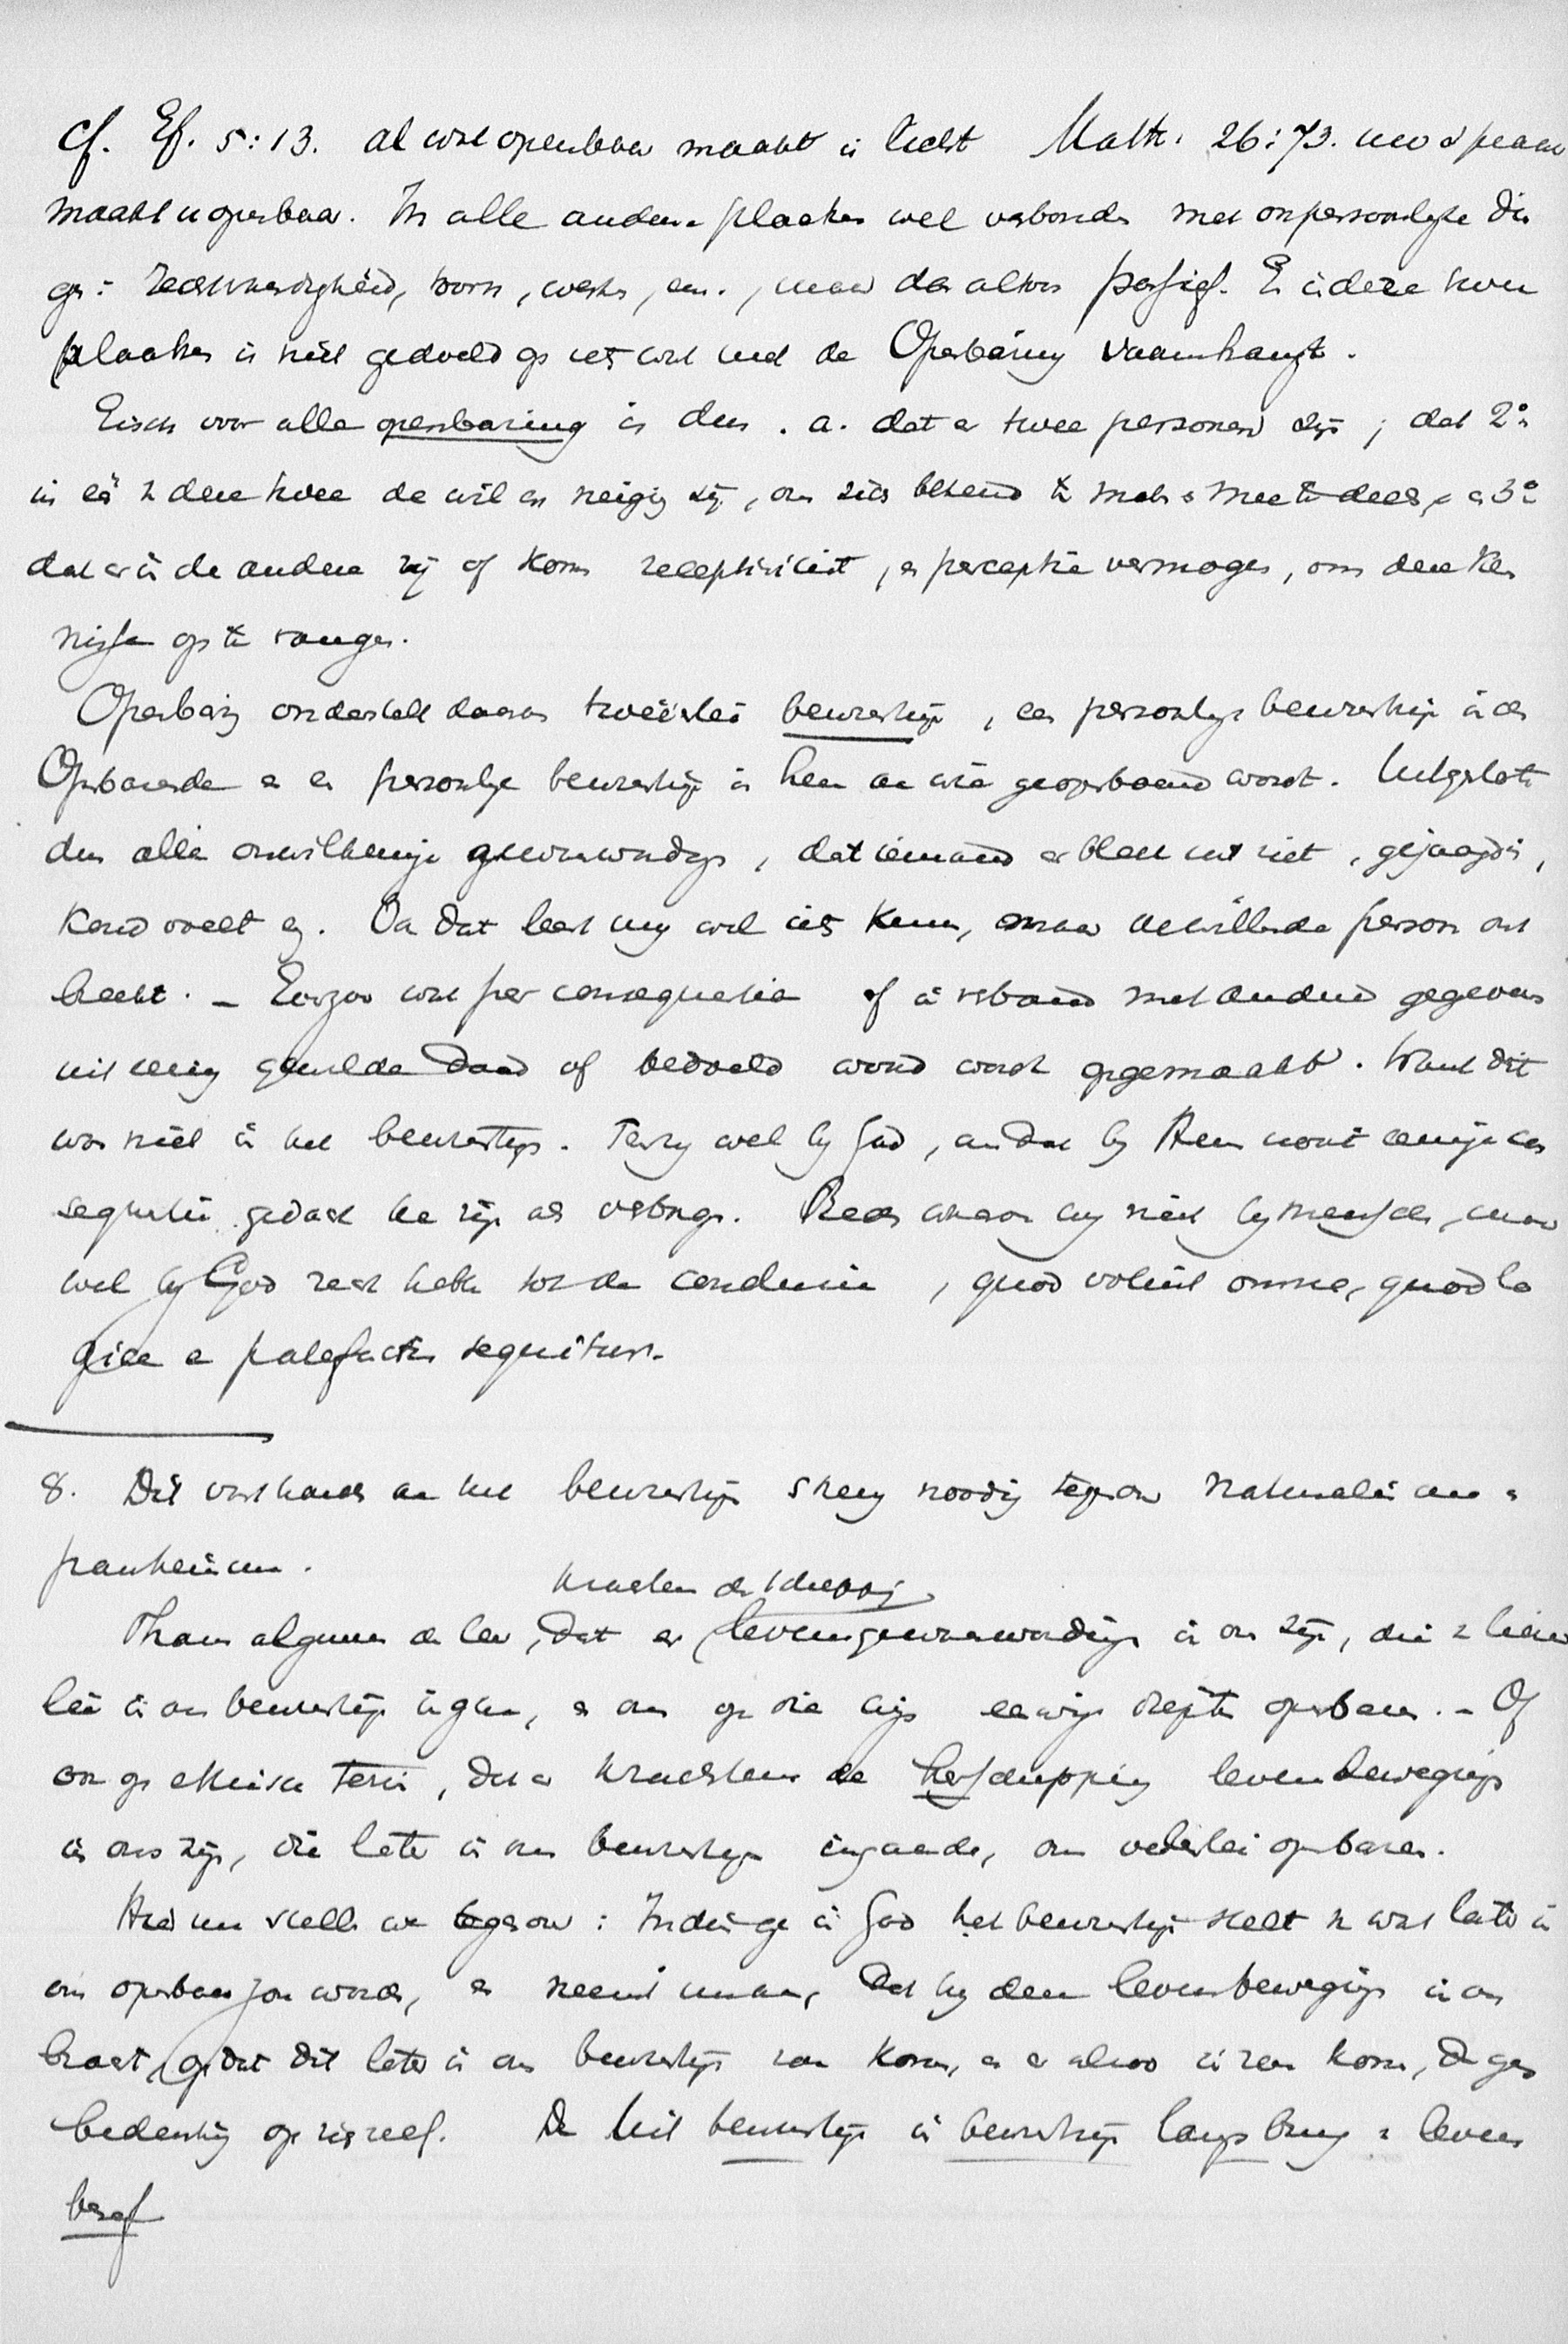 cf. Ef. 5:13. al wat openbaar maakt is licht Matth. 26:73. uw spraak
maakt u openbaar. In alle andere plaatsen wel verbonden met onpersoonlijke din
gen: rechtvaardigheid, toorn, werken, enz., maar dan altoos passief. En in deze twee
plaatsen is niet gedoeld op iets wat met de Openbaring samenhangt.
Eisch voor alle openbaring is dus . a. dat er twee personen zijn ; dat 2°
in een v deze twee de wil en neiging zij, om zich bekend te maken & mee te deelen, en 3°
dat er in de andere zij of kome receptiviteit, en perceptie vermogen, om deze ken
nisse op te vangen.
Openbaring onderstelt daarom tweeërlei bewustzijn, een persoonlijk bewustzijn in den
Openbarende en een persoonlijk bewustzijn in hem aan wie geopenbaard wordt. Uitgesloten
dus alle onwillekeurige gewaarwordingen, dat iemand er bleek uit ziet, gejaagd is,
koud voelt enz. Ook dat leert mij wel iets kennen, maar de willende persoon ont
breekt. – Evenzoo wat per consequentie of in verband met andere gegevens
uit eenig gewilde daad of bedoeld woord wordt opgemaakt. Want dit
was niet in het bewustzijn. Tenzij wel bij God, omdat bij Hem nooit eenige con
sequentie gedacht kan zijn als verborgen. Reden waarom wij niet bij menschen, maar
wel bij God recht hebben tot de conclusie, quod voluit omne, quod lo
gice e patefactis sequitur.
8. Dit vasthouden aan het bewustzijn streng noodig tegenover Naturalisme en
pantheisme.
krachten der schepping
Thans algemeen de leer, dat er levensgewaarwordingen in ons zijn, die
in ons bewustzijn ingaan, en ons op die wijs eeuwige diepten openbaren. – Of
ook op ethisch terrein, dat er krachtens de herschepping levensbewegingen
in ons zijn, die later in ons bewustzijn ingaande, ons velerlei openbaren.
Hier nu stellen we tegenover: Indien ge in God het bewustzijn stelt v wat later in
ons openbaar zou worden, en neemt nu aan, dat hij deze levensbewegingen in ons
bracht, opdat dit later in ons bewustzijn zou komen, en er alzoo in zou komen, dan geen
bedenking op zich zelf. Dan uit bewustzijn in bewustzijn langs brug v levens
besef